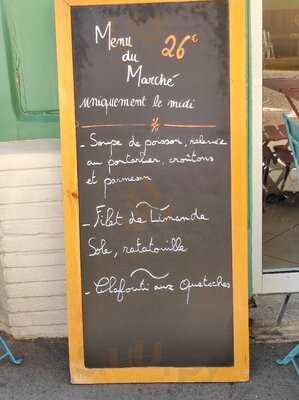 Menu 26€
du
Marché
uniquement le midi
- Soupe de poisson, relevée
au pontarlier, croûtons
et parmesan
- Filet de Limande
Sole, ratatouille
- Clafouti aux Quetsches